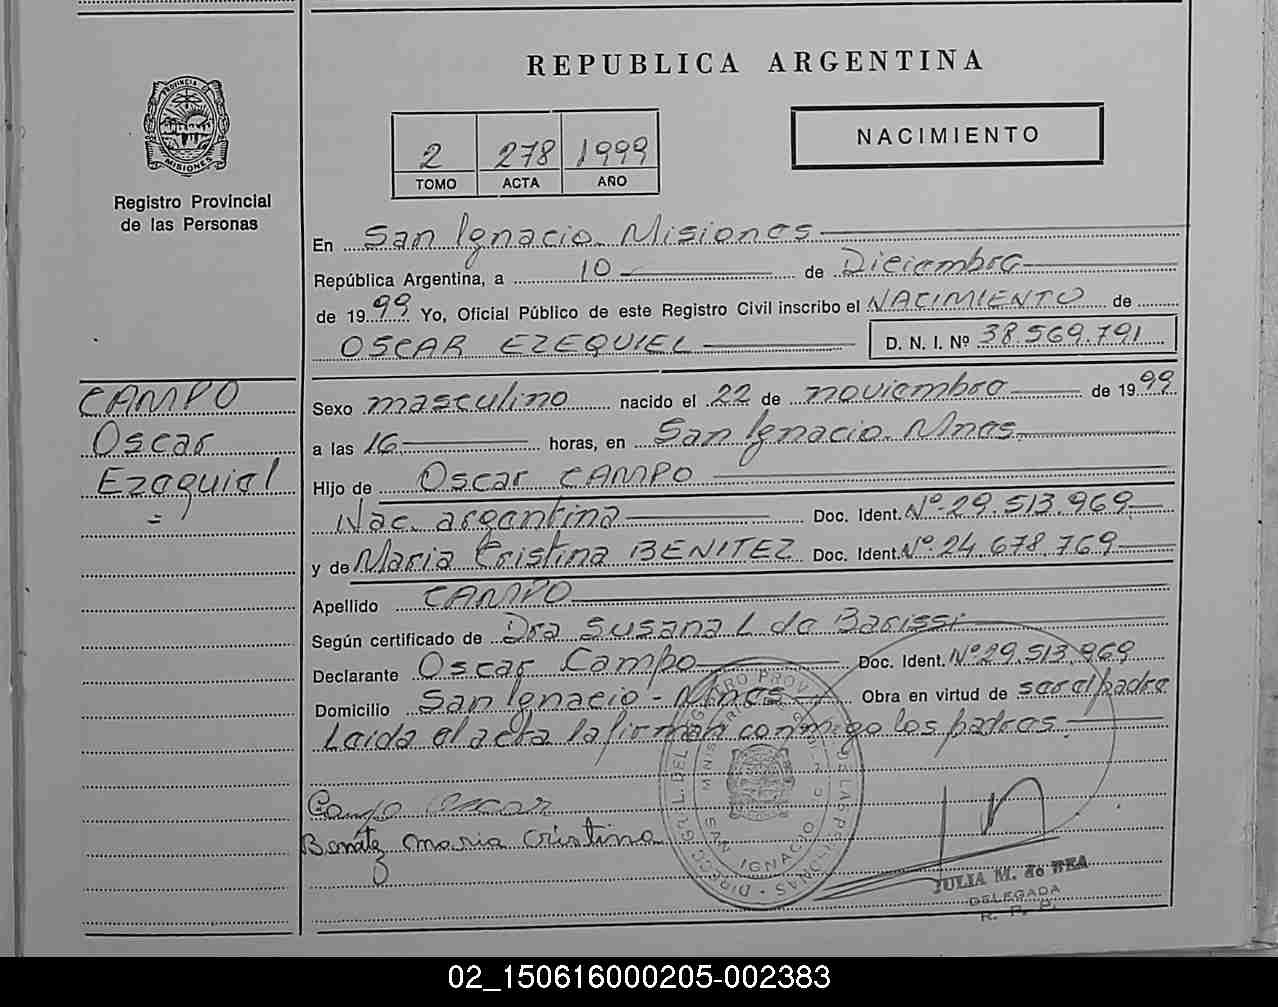 REPUBLICA ARGENTINA
PROVINCIA DE MISIONES
Registro Provincial
de las Personas
2 278 1999
TOMO ACTA AÑO
NACIMIENTO
En San Ignacio. Misiones
República Argentina, a 10 de Diciembre
de 1999 Yo, Oficial Público de este Registro Civil inscribo el NACIMIENTO de
OSCAR EZEQUIEL D. N. I. Nº 38.569.791
CAMPO
Oscar
Ezequiel
=
Sexo masculino nacido el 22 de noviembre de 1999
a las 16 horas, en San Ignacio. Mnes
Hijo de Oscar CAMPO
Nac. argentina Doc. Ident. Nº 29.513.969
y de Maria Cristina BENITEZ Doc. Ident. Nº 24.678.769
Apellido CAMPO
Según certificado de Dra Susana L de Barissi
Declarante Oscar Campo Doc. Ident. Nº 29.513.969
Domicilio San Ignacio - Mnes Obra en virtud de ser el padre
Leida el acta la firman conmigo los padres.
Campo Oscar
Benitez Maria Cristina
SAN IGNACIO
JULIA M. de BEA
DELEGADA
R. P. P.
02_150616000205-002383